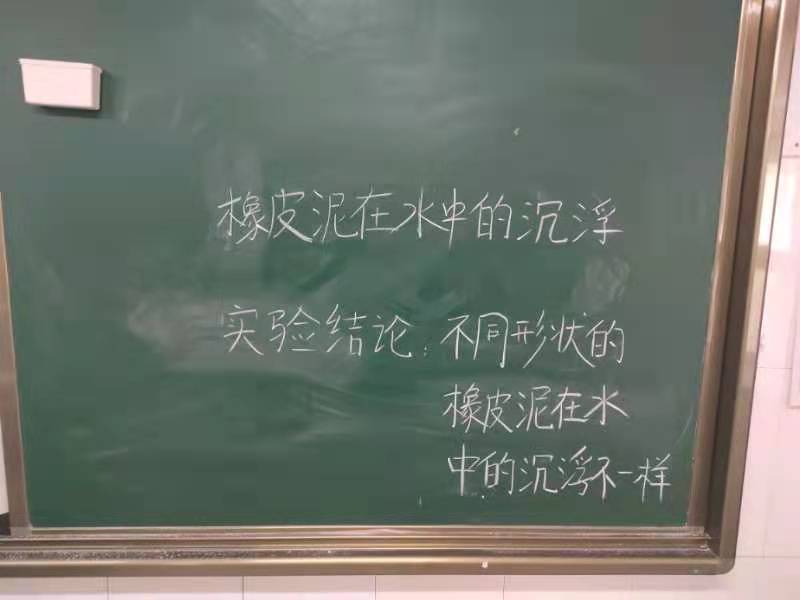 橡皮泥在水中的沉浮
实验结论：不同形状的
橡皮泥在水
中的沉浮不一样